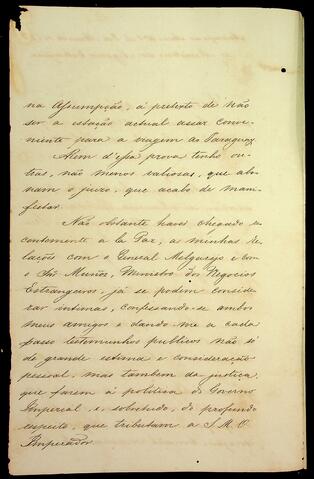 na Assumpção, a pretexto de não
ser a estação actual assaz conve-
niente para a viagem ao Paraguay.
Alem d'essa prova tenho ou-
tras, não menos valiosas, que abo-
nam o juizo, que acabo de mani-
festar.
Não obstante haver chegado re-
centemente a La Paz, as minhas re-
lações com o General Melgarejo e com
o Snr. Muñoz, Ministro dos Negocios
Estrangeiros, já se podem conside-
rar intimas, confessando-se ambos
meus amigos e dando-me a cada
passo testimunhos publicos não só
de grande estima e consideração
pessoal, mas tambem da justiça,
que fazem á politica do Governo
Imperial e, sobretudo, do profundo
respeito, que tributam a S. M. O
Imperador.